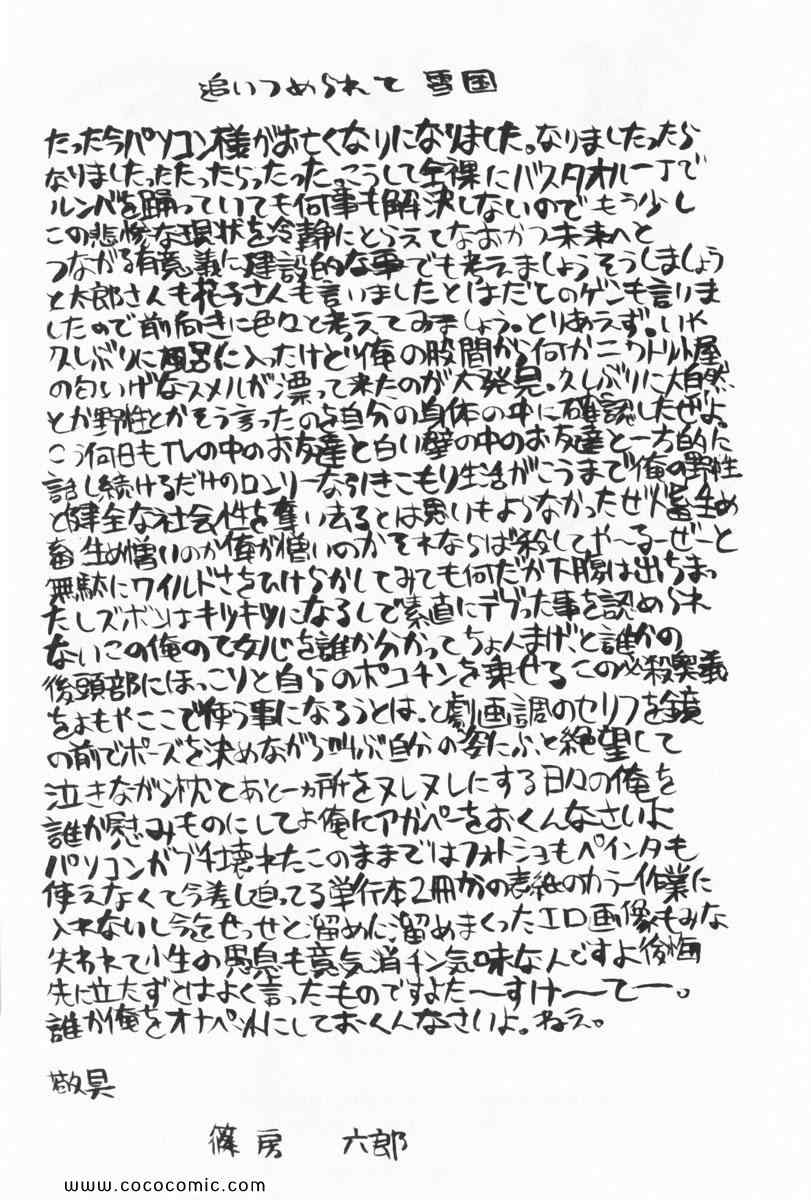 追いつめられて 雪国
たった今パソコン様がお亡くなりになりました。なりましたったら
なりましたったたったらったった。こうして全裸にバスタオル一丁で
ルンバを踊っていても何事も解決しないのでもう少し
この悲惨な現状を冷静にとらえてなおかつ未来へと
つながる有意義に建設的な事でも考えましょうそうしましょう
と太郎さんも花子さんも言いましたとはだしのゲンも言いま
したので前向きに色々と考えてみましょう。とりあえず。いや
久しぶりに風呂に入ったけど俺の股間から何かニワトリ小屋
の匂いげなスメルが漂って来たのが大発見。久しぶりに大自然
とか野性とかそう言ったのを自分の身体の中に確認したぜよ。
こう何日もTVの中のお友達と白い壁の中のお友達と一方的に
話し続けるだけのロンリーな引きこもり生活がこうまで俺の野性
と健全な社会性を奪い去るとは思いもよらなかったぜ畜生め
畜生め憎いのか俺が憎いのかそれならば殺してや〜るーぜーと
無駄にワイルドさをひけらかしてみても何だか下腹は出ちまっ
たしズボンはキツキツになるしで素直にデブった事を認められ
ないこの俺のて女心を誰か分かってちょんまげ、と誰かの
後頭部にほっこりと自らのポコチンを乗せるこの必殺奥義
をよもやここで使う事になろうとは。と劇画調のセリフを鏡
の前でポーズを決めながら叫ぶ自分の姿にふと絶望して
泣きながら枕とあと一ヵ所をヌレヌレにする日々の俺を
誰か慰みものにしてよ俺にアガペーをおくんなさいよ
パソコンがブチ壊れたこのままではフォトショもペインタも
使えなくて今差し迫ってる単行本2冊分の表紙のカラー作業に
入れないし今迄せっせと溜めに溜めまくったエロ画像もみな
失われて小生の愚息も意気消チン気味なんですよ後悔
先に立たずとはよく言ったものですよた〜すけ〜てー。
誰か俺をオナペットにしておくんなさいよ。ねえ。
敬具
篠房 六郎
www.cococomic.com